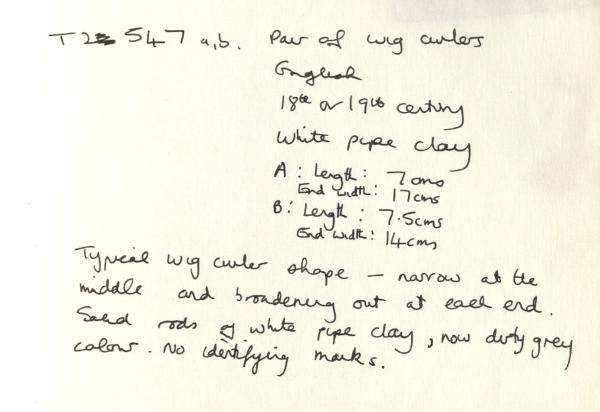 T 2 547 a,b. Pair of wig curlers
English
18th or 19th century
White pipe clay
A : Length : 7cms
End width : 17cms
B : Length : 7.5cms
End width : 14cms
Typical wig curler shape – narrow at the
middle and broadening out at each end.
Solid rods of white pipe clay, now dirty grey
colour. No identifying marks.